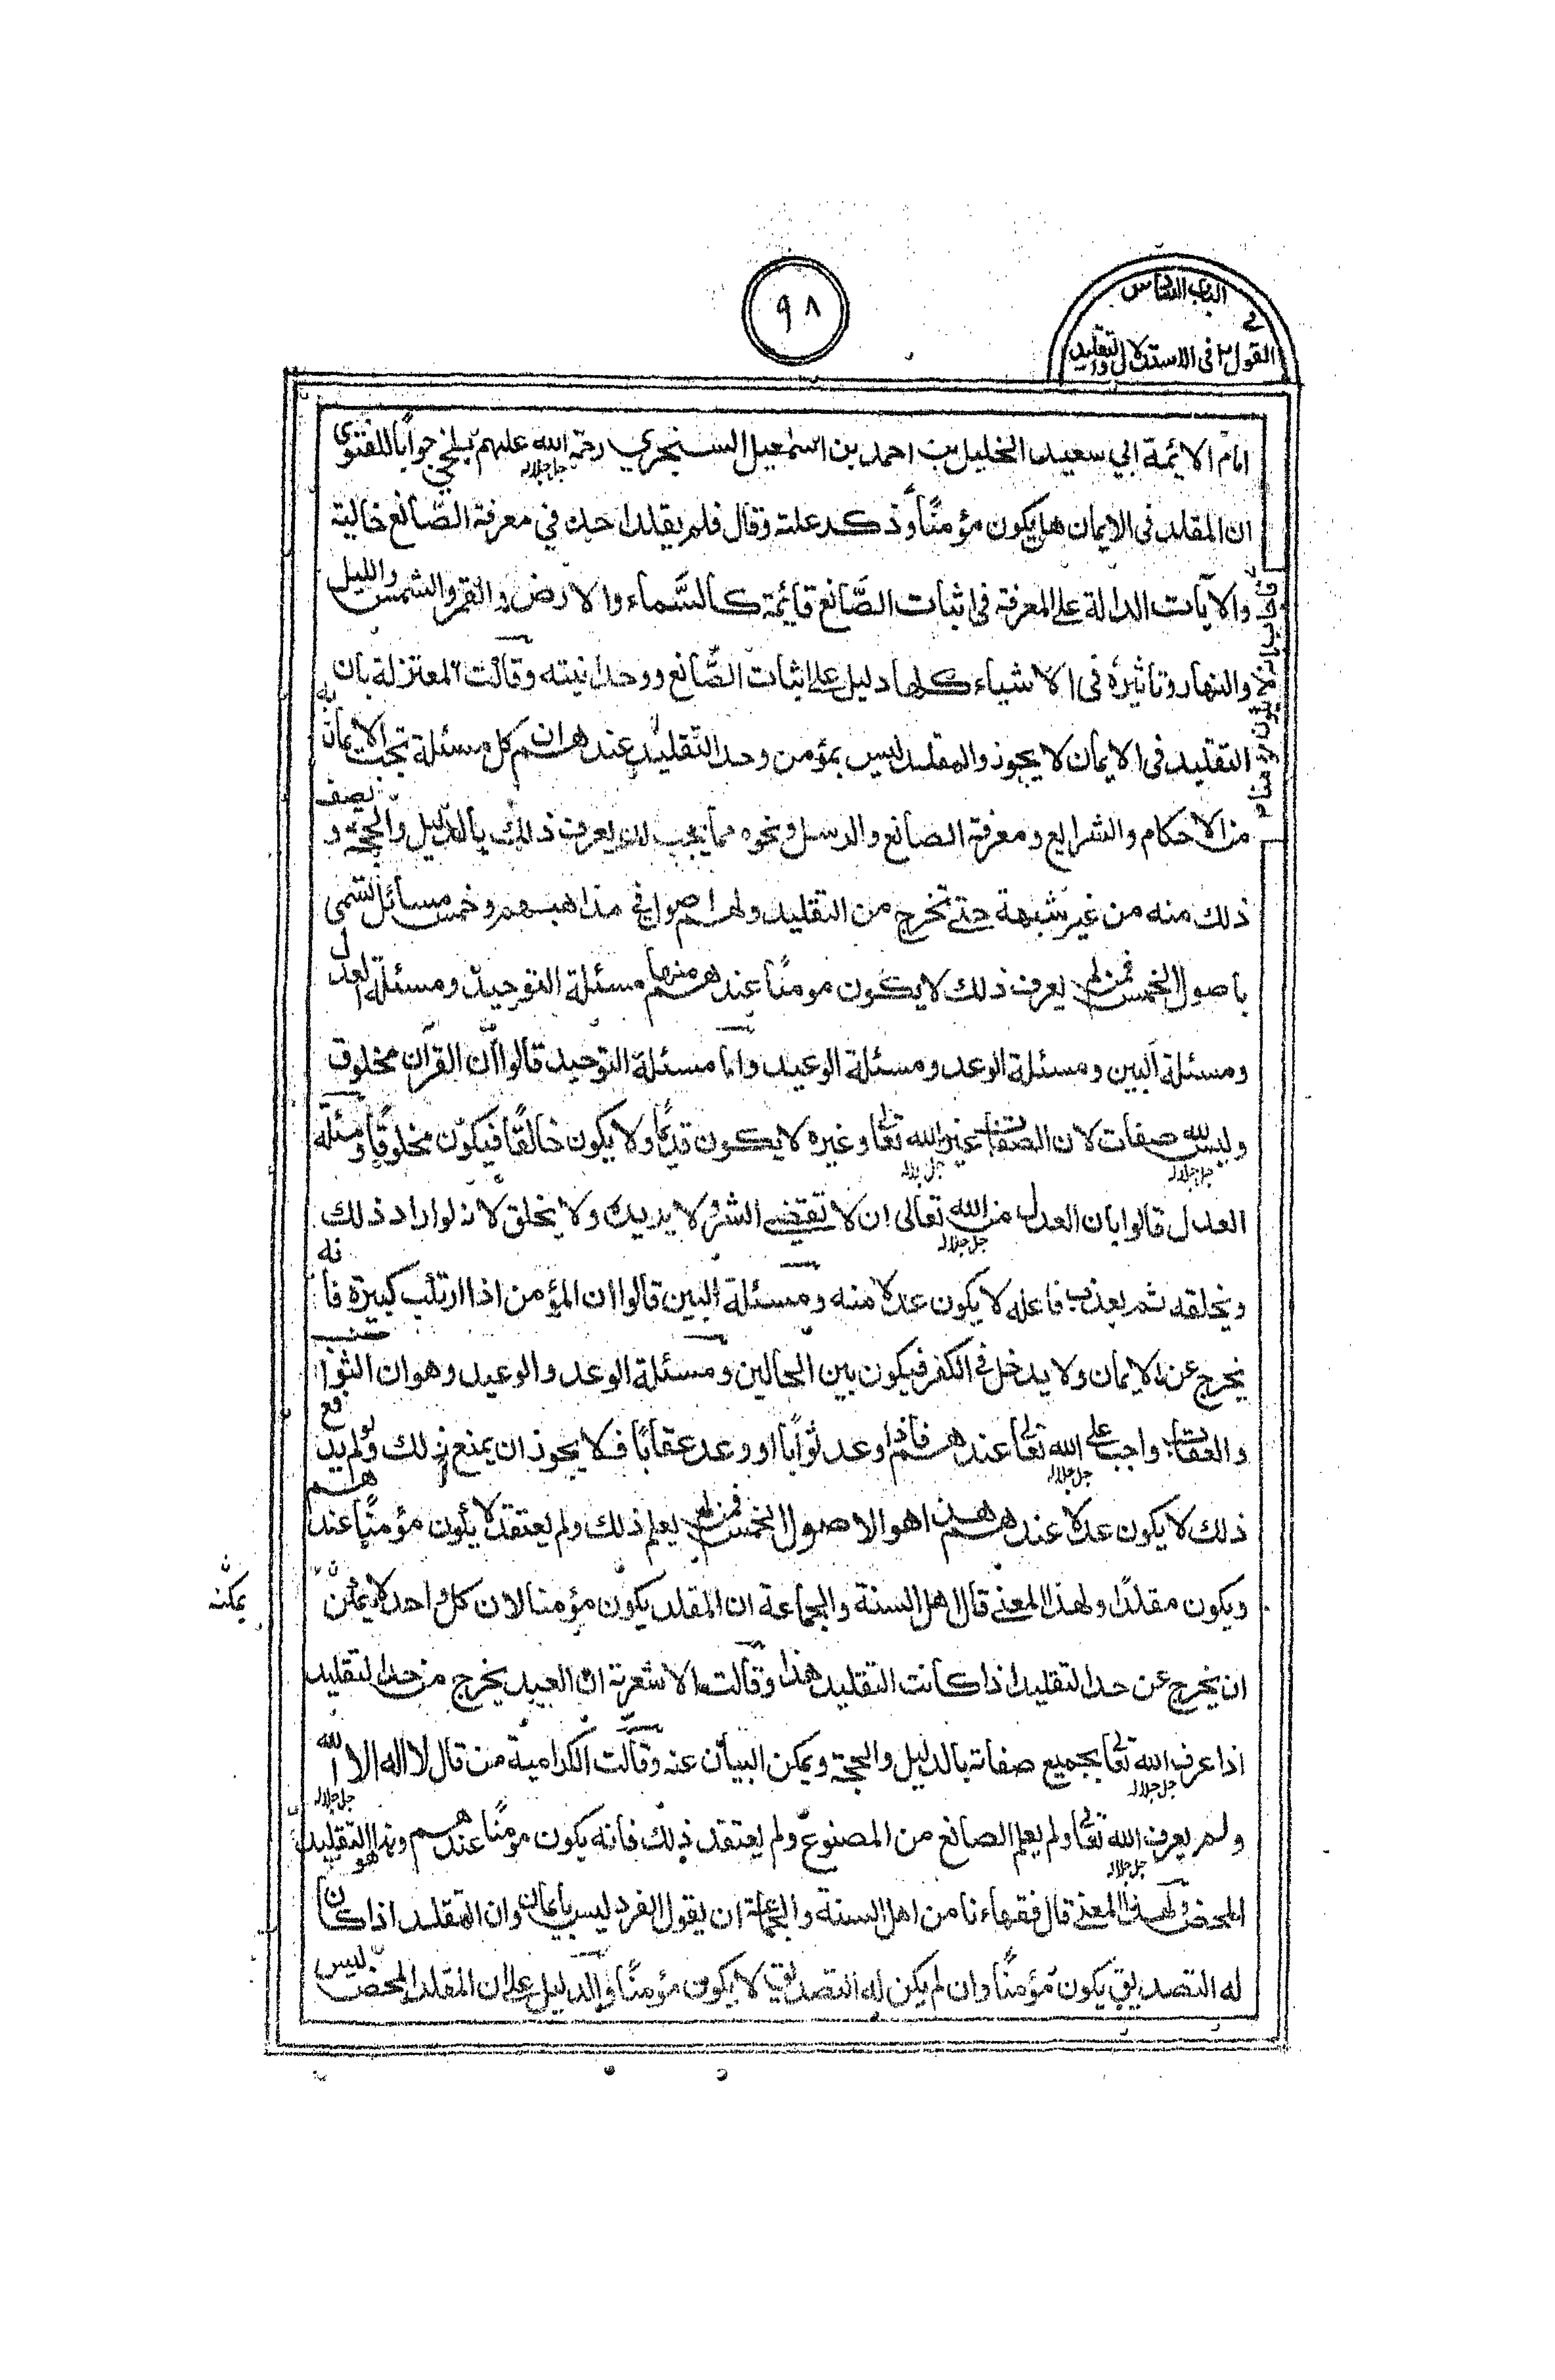 الباب السادس
في
القول ٢ في الاستدلال والتقليد
٩٨
امام الائمة ابي سعيد الخليل بن احمد بن اسمعيل السنجري رحمة الله عليهم ببلخ جوابا للفتوى
جل جلاله
ان المقلد في الايمان هل يكون مؤمنًا وذكر علته وقال فلم يقلد احد في معرفة الصّانع خالية
والآيات الدالة على المعرفة في اثبات الصّانع قائمة كالسّماء والارض والقمر والشمس والليل
والنهار وتأثيره في الاشياء كلها دليل على اثبات الصّانع ووحدانيته وقالت المعتزلة بان
التقليد في الايمان لا يجوز والمقلد ليس بمؤمن وحد التقليد عندهم ان كل مسئلة تحت الايمان
من الاحكام والشرايع ومعرفة الصانع والرسل ونحوه مما يجب ان يعرف ذلك بالدليل والحجة و يصف
ذلك منه من غير شبهة حتى تخرج من التقليد ولهم اصول في مذاهبهم وخمس مسائل تسمى
باصول الخمس فمن لم يعرف ذلك لا يكون مومنًا عندهم منها مسئلة التوحيد ومسئلة العدل
ومسئلة البين ومسئلة الوعد ومسئلة الوعيد واما مسئلة التوحيد قالوا ان القرآن مخلوق
وليس لله صفات لان الصفات غير الله تعالى وغيره لا يكون قديمًا ولا يكون خالقًا فيكون مخلوقًا ومسئلة
جل جلاله جل جلاله
العدل قالوا بان العدل من الله تعالى ان لا تقتضي الشر ولا يريده ولا يخلق لانه لو اراد ذلك
جل جلاله
ويخلقه ثم يعذب فاعله لا يكون عدلا منه ومسئلة البين قالوا ان المؤمن اذا ارتكب كبيرة فانه
يخرج عن الايمان ولا يدخل في الكفر فيكون بين الحالين ومسئلة الوعد والوعيد وهو ان الثواب
والعقاب واجب على الله تعالى عندهم فاذا وعد ثوابًا او وعد عقابًا فلا يجوز ان يمنع ذلك ولو لم يدفع
جل جلاله
ذلك لا يكون عدلا عندهم هذا هو الاصول الخمس فمن لم يعلم ذلك ولم يعتقد لا يكون مؤمنًا عندهم
ويكون مقلدًا ولهذا المعنى قال اهل السنة والجماعة ان المقلد يكون مؤمنا لان كل واحد لا يمكن
يمكنه
ان يخرج عن حد التقليد اذا كانت التقليد هذا وقالت الاشعرية ان العبد يخرج من حد التقليد
اذا عرف الله تعالى بجميع صفاته بالدليل والحجة ويمكن البيان عنه وقالت الكرامية من قال لا اله الا الله
جل جلاله جل جلاله
ولم يعرف الله تعالى ولم يعلم الصانع من المصنوع ولم يعتقد ذلك فانه يكون مومنًا عندهم وهذا هو التقليد
جل جلاله
المحض ولهذا المعنى قال فقهاءنا من اهل السنة والجماعة ان يقول الفرد ليس بايمان وان المقلد اذا كان
له التصديق يكون مؤمنًا وان لم يكن له التصديق لا يكون مؤمنًا والدليل على ان المقلد المحض ليس